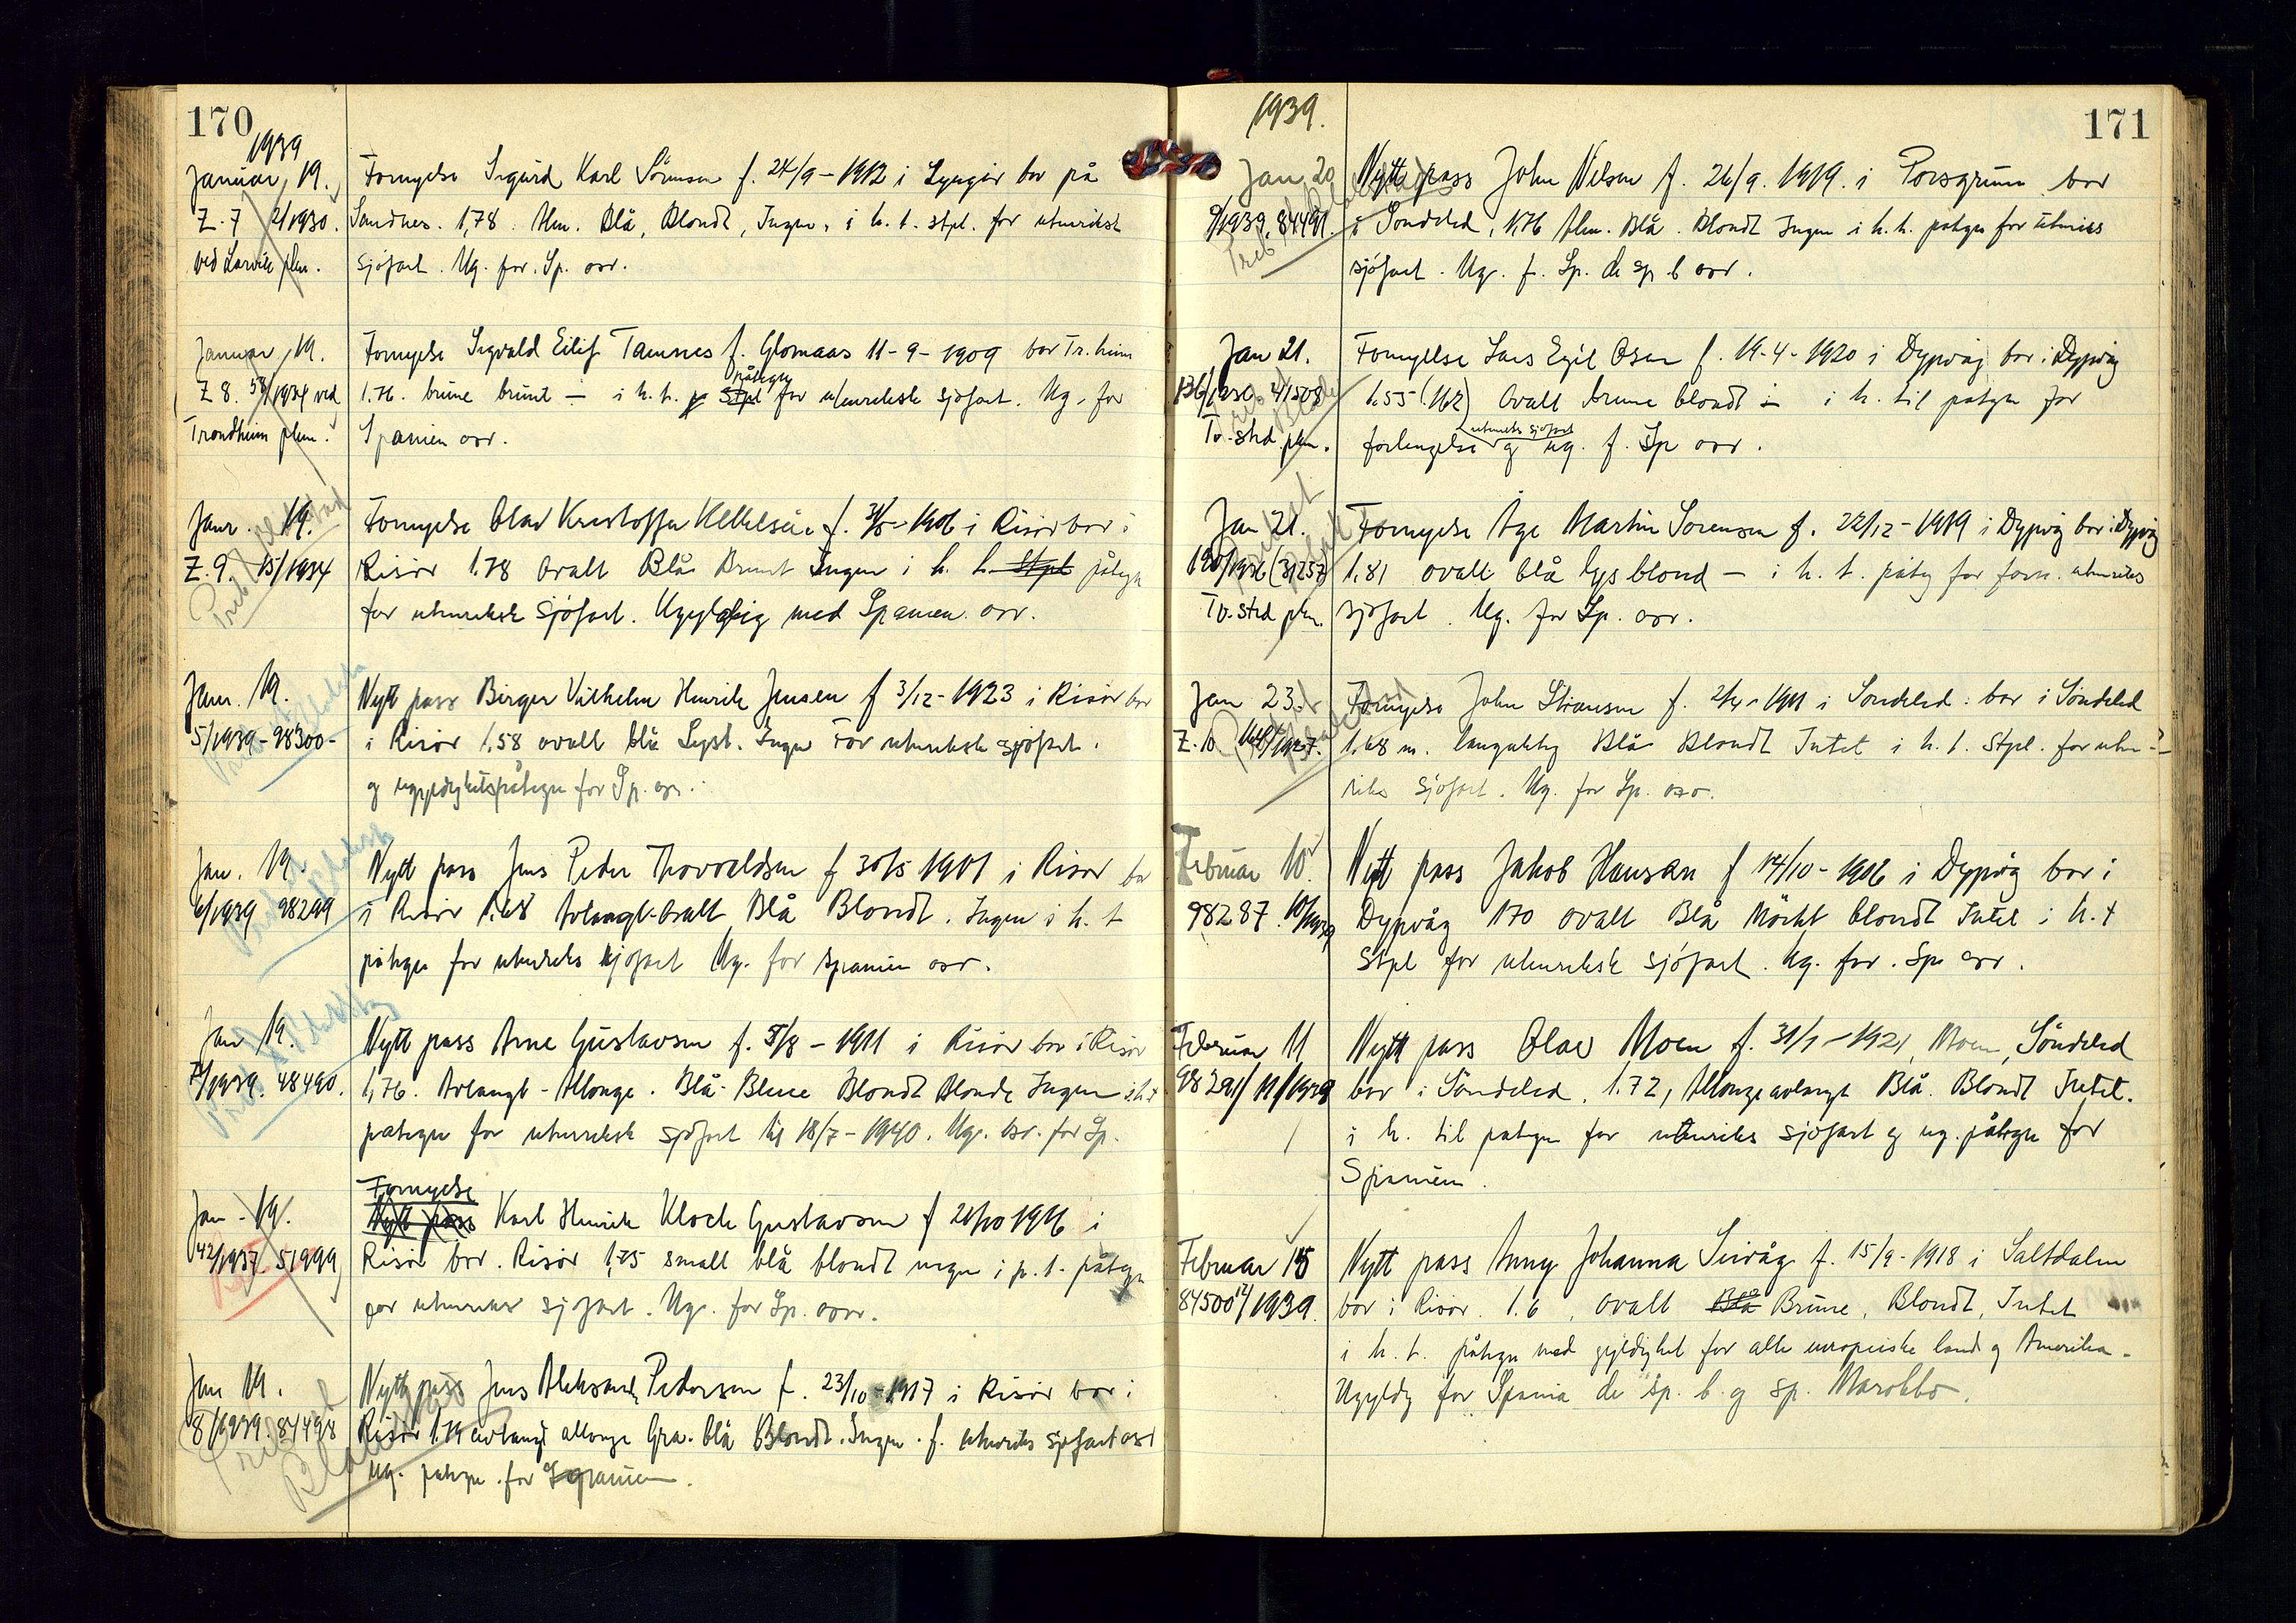 170
1939
Januar, 19.
Z. 7 2/1930.
ved Larvik plm.
Fornyelse Sigurd Karl Sörensen f. 24/9 - 1912 i Lyngör bor på
Sandnes. 1,78. Alm. Blå, Blondt, Ingen, i h. t. stpl. for utenriksk
sjöfart. Ug. for. Sp. osv.
Januar, 19.
Z 8. 58/1934 ved
Trondheim plm.
Fornyelse Sigvald Eilif Tamnes f. Glomaas 11-9-1909 bor Tr.heim
1.76. brune brunt - i h. t. påtegn for utenriksk sjöfart. Ug. for
Spanien osv.
Janr. 19.
Z. 9. 15/1934
Fornyelse Olav Kristoffer f. 31/5-1906 i Risör bor i
Risör 1.78 Ovalt Blå Brunt Ingen i h. t. Stpl påtegn
for utenriksk sjöfart. Ugyldig med Spanien osv.
Jan. 19.
5/1939-98300-
Nytt pass Birger Vilhelm Henrik Jensen f 3/12-1923 i Risör bor
i Risör 1,58 ovalt blå Lyst. Ingen For utenriksk sjöfart.
og ugyldighetspåtegn for Sp. osv.
Jan. 19.
6/1939 98299
Nytt pass Jens Peder Thorvaldsen f 30/5 1901 i Risör bor
i Risör 1.68 Avlangt-Ovalt Blå Blondt. Ingen i h. t
påtegn for utenriks sjöfart Ug. for Spanien osv.
Jan 19.
7/1939. 48490.
Nytt pass Arne Gustavsen f. 5/8 - 1911 i Risör bor i Risör
1,76. Avlangt - Allonge. Blå - Bleue Blondt Blonde Ingen i h. t
påtegn for utenriksk sjöfart til 18/7 - 1940. Ug. osv. for Sp.
Jan - 19.
42/1937. 51999
Fornyelse
Nytt pass Karl Henrik Kloch Gustavsen f 20/10 1916 i
Risör bor. Risör 1,75 smalt blå blondt ingen i h. t. påtegn
for utenriks sjöfart. Ug. for Sp. osv.
Jan 19.
8/1939. 84498
Nytt pass Jens Aleksand. Pedersen f. 23/10-1917 i Risör bor i
Risör 1.74 avlangt allonge Grå-blå Blondt. Ingen. f. utenriks sjöfart osv
Ug. påtegn. for Spanien.
1939.
171
Jan 20
9/1939, 84491.
Nytt pass John Nilsen f. 26/9. 1919. i Porsgrunn bor
i Söndeled, 1,76 Alm. Blå. Blondt Ingen i h. t. påtegn for utenriks
sjöfart. Ug. f. Sp. de sp b osv.
Jan 21.
41508
Tv.strd plm.
Fornyelse Lars Egil Osen f. 19-4-1920 i Dypvåg bor i Dypvåg
1,55 (162) Ovalt brune blondt - i h. til påtegn for
forlengelse utenriks sjöfart og ug. f. Sp osv.
Jan 21.
(31257)
Tv.strd plm.
Fornyelse Åge Martin Sörensen f. 22/12-1919 i Dypvåg bor i Dypvåg
1,81 ovalt blå lys blond - i h. t. påtg for forn. utenriks
sjöfart. Ug. for Sp. osv.
Jan 23.
Z. 10
Fornyelse John f. 2/4-1911 i Söndeled. bor i Söndeled
1,68 m. langaktig Blå Blondt Intet i h. t. Stpl. for uten-
riks sjöfart. Ug. for Sp. osv.
Februar 10
98287. 10/1939
Nytt pass Jakob Hansen f 14/10-1906 i Dypvåg bor i
Dypvåg 170 ovalt Blå Mörkt blondt Intet i h. t
Stpl for utenriksk sjöfart. Ug. for. Sp. osv.
Februar 11
98291/ 11/1939
Nytt pass Olav Moen f. 31/1-1921, Moen, Söndeled
bor i Söndeled. 1.72, Allonge avlangt Blå. Blondt Intet.
i h. til påtegn for utenriks sjöfart og ug. påtegn for
Spanien.
Februar 15
84500 12/1939.
Nytt pass Anny Johanna Seivåg f. 15/9-1918 i Saltdalen
bor i Risör. 1.6, ovalt Blå Brune, Blondt, Intet
i h. t. påtegn med gyldighet for alle europeiske land og Amerika.
Ugyldig for Spania de sp. b. og sp. Marokko.